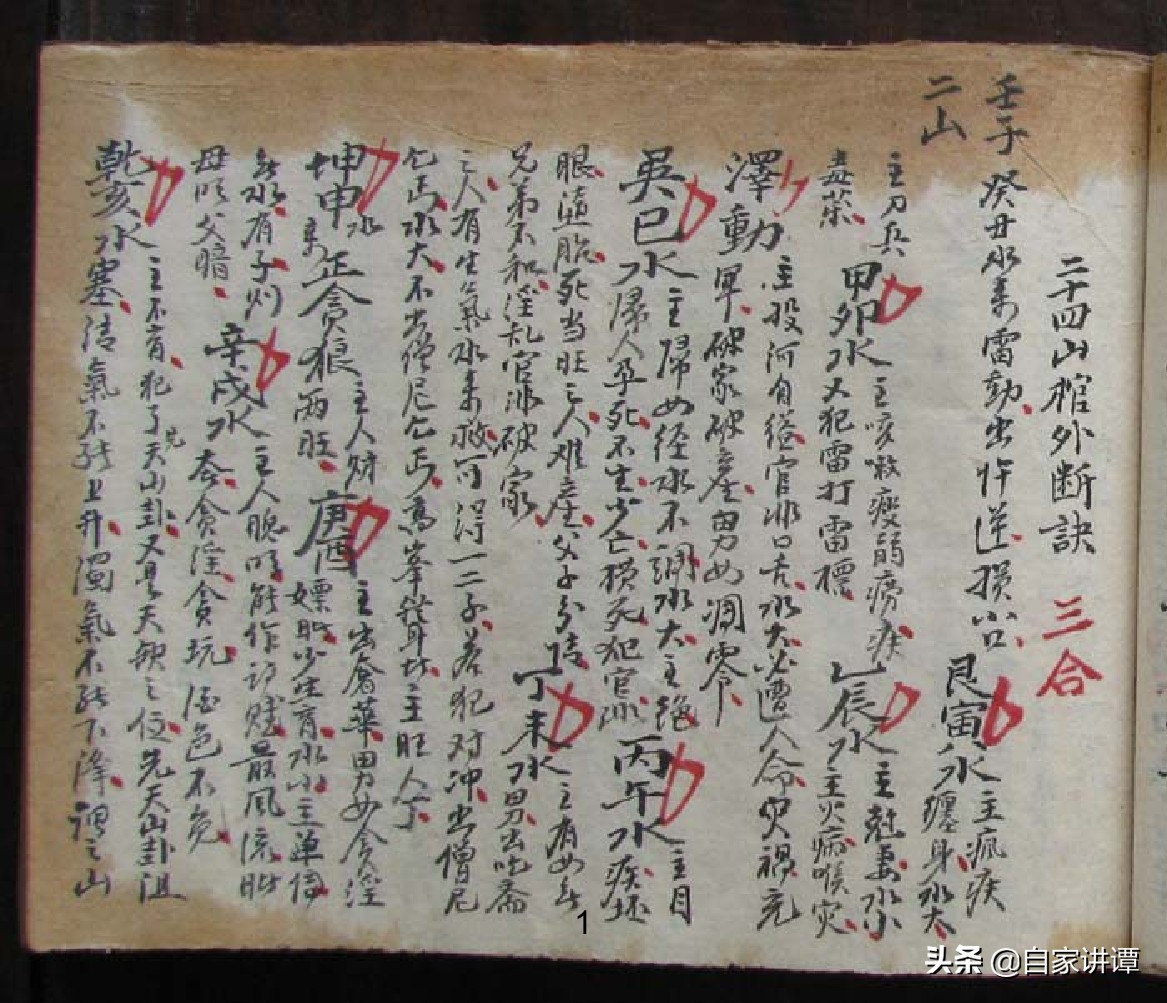 二十四山棺外断訣 三合
壬子 癸丑水来雷動出忤逆損小口 艮寅水主瘋疾
二山 纏身水大
主刀兵 甲卯水主咳嗽瘦弱痨疾 乙辰水主尅妻水小
毒藥 又犯雷打雷標 主火病喉灾
澤動主投河自縊官非口舌水大必遭人命灾禍充
軍破家破産男女凋零
吳巳水主婦女経水不調水大主绝 丙午水主目
婦人孕死不生少亡横死犯官非 疾
眼堕胎死当旺之人难産父子分 丁未水主有女無
兄弟不和淫乱官非破家 男出吃斋
之人有生氣水来救可得一二子若犯对冲出僧尼
乞丐水大不出僧尼乞丐高峯 主旺人丁
坤申水正贪狼主人财 庚酉主出奢華男女贪淫
来 両旺 嫖 少生育水小主單傳
水有子 辛戌水主人聪明能作詩赋最風流
母明父暗 贪淫贪玩酒色不免
乾亥水主不育犯了天山卦又是天 之位先天山卦
塞清氣不能上升濁氣不能下降 之山
1
头条 @自家讲谭